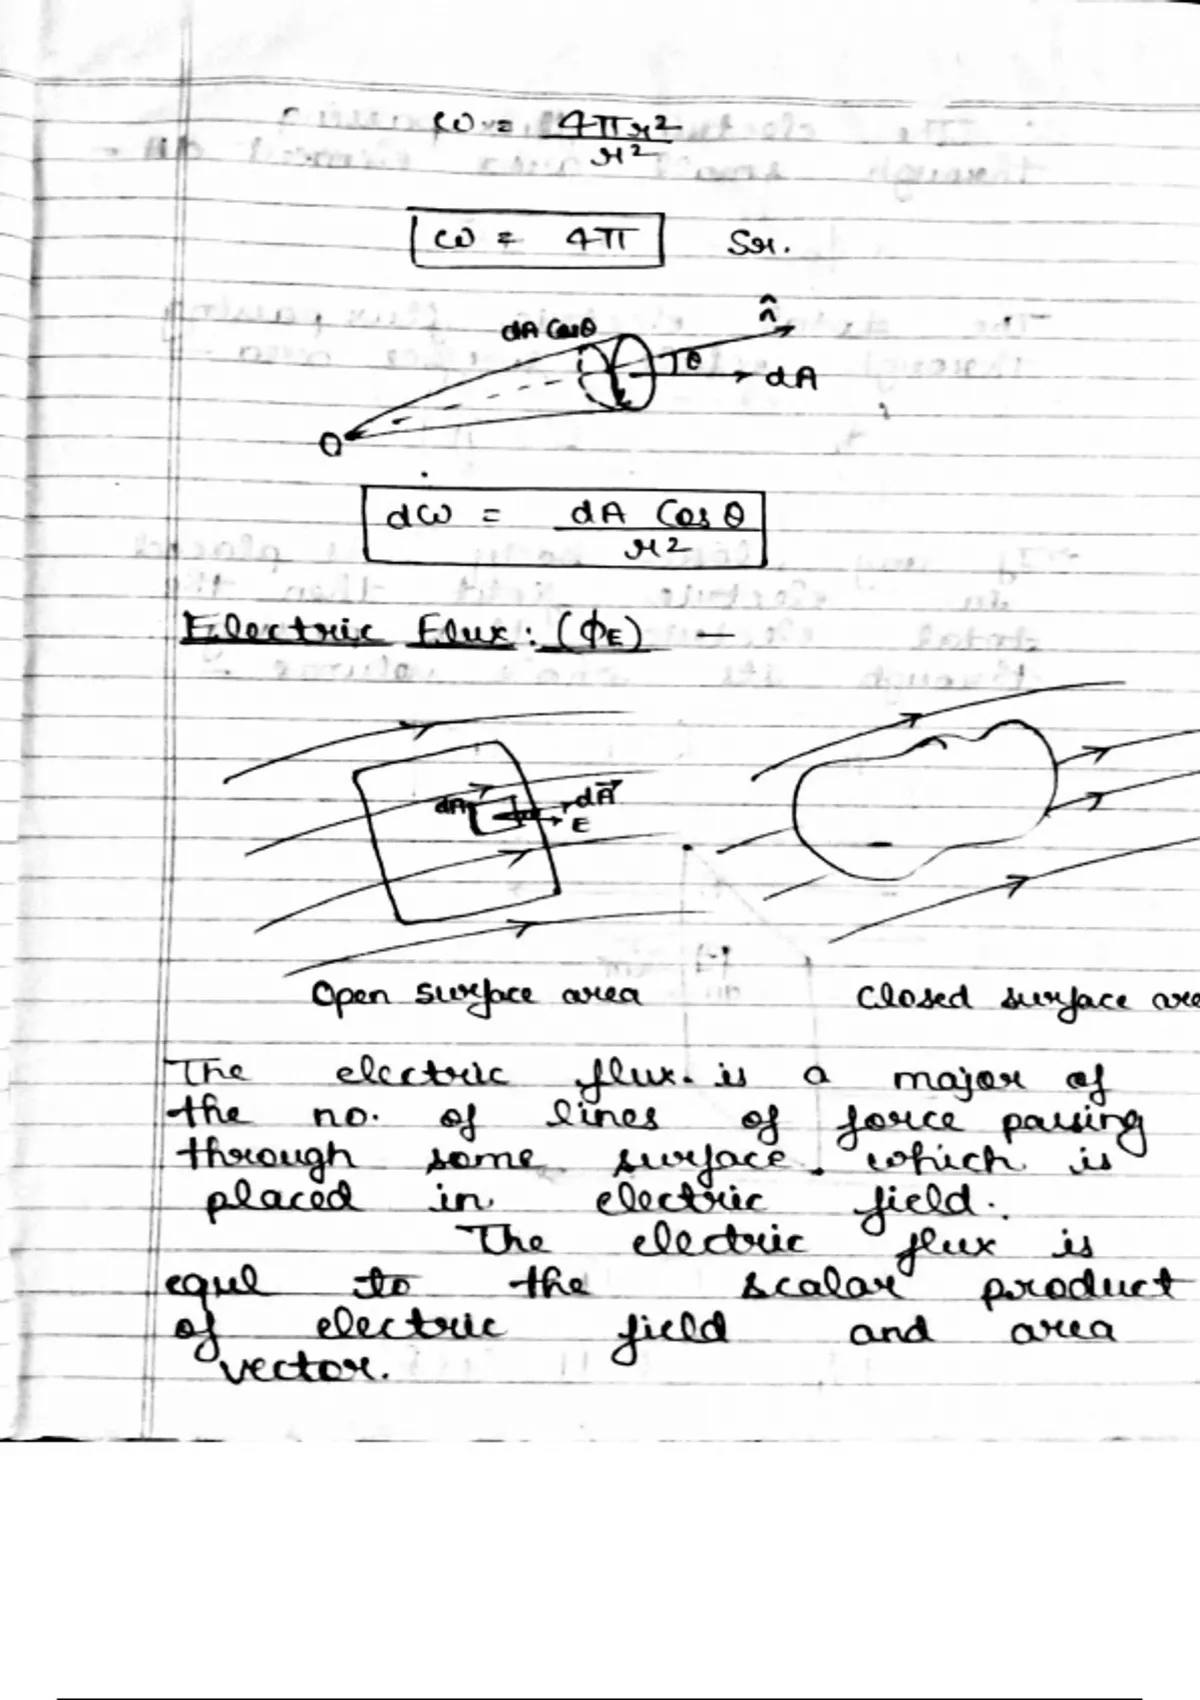 ω = 4πr²
r²
ω = 4π Sr.
dA Cosθ
n̂
θ
dA
O
dω = dA Cosθ
r²
Electric Flux: (ΦE) —
dA
dA⃗
E
Open surface area Closed surface are
The electric flux is a major of
the no. of lines of force passing
through some surface which is
placed in electric field.
The electric flux is
equl to the scalar product
of electric field and area
vector.